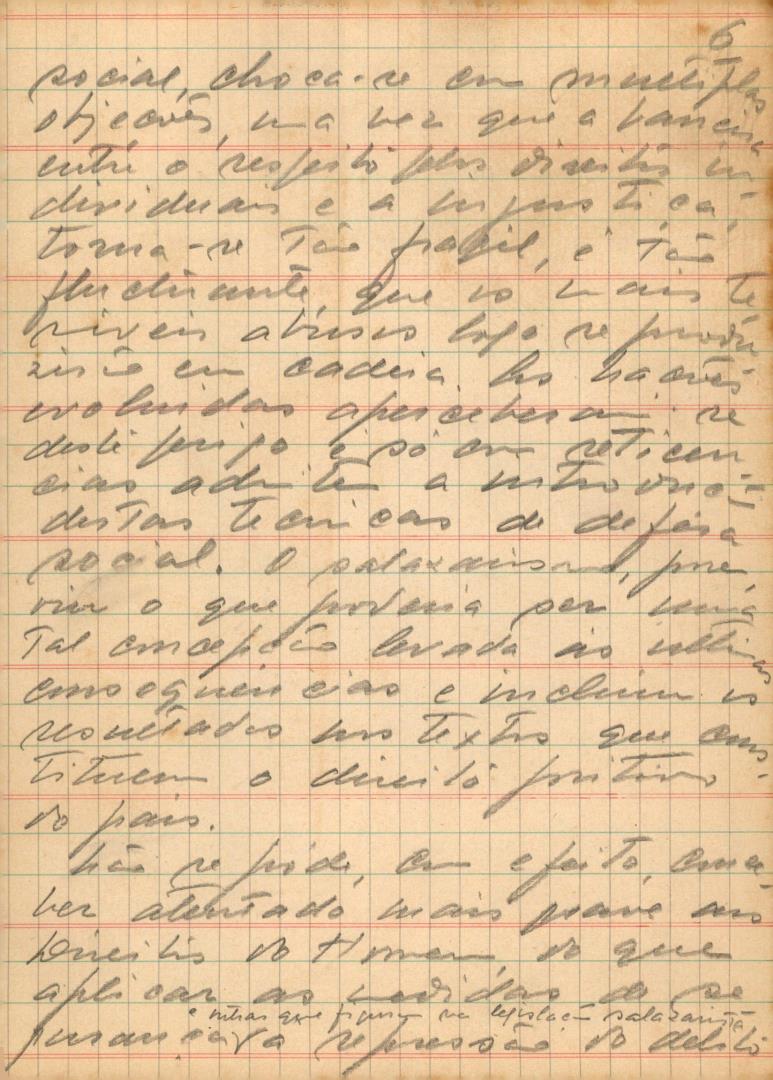 6
social, choca-se em multiplas
objecções, uma vez que a barreira
entre o respeito pelos direitos in-
dividuais e a injustiça,
torna-se tão fragil, e tão
fluctuante, que os mais te
riveis abusos logo se produ
zirão em cadeia. As nações
evoluidas aperceberam-se
deste perigo e só com reticen
cias admitem a introdução
destas tecnicas de defesa
social. O salazarismo, pore
viu o que poderia ser uma
tal concepção levada ás ultimas
consequencias e incluiu os
resultados nos textos que cons-
tituem o direito positivo
do pais.
Não se pode, com efeito, conce-
ber atentado mais grave aos
Direitos do Homem do que
aplicar as medidas de se
e outras que figuram na legislação salazarista
gurança á repressão do delito